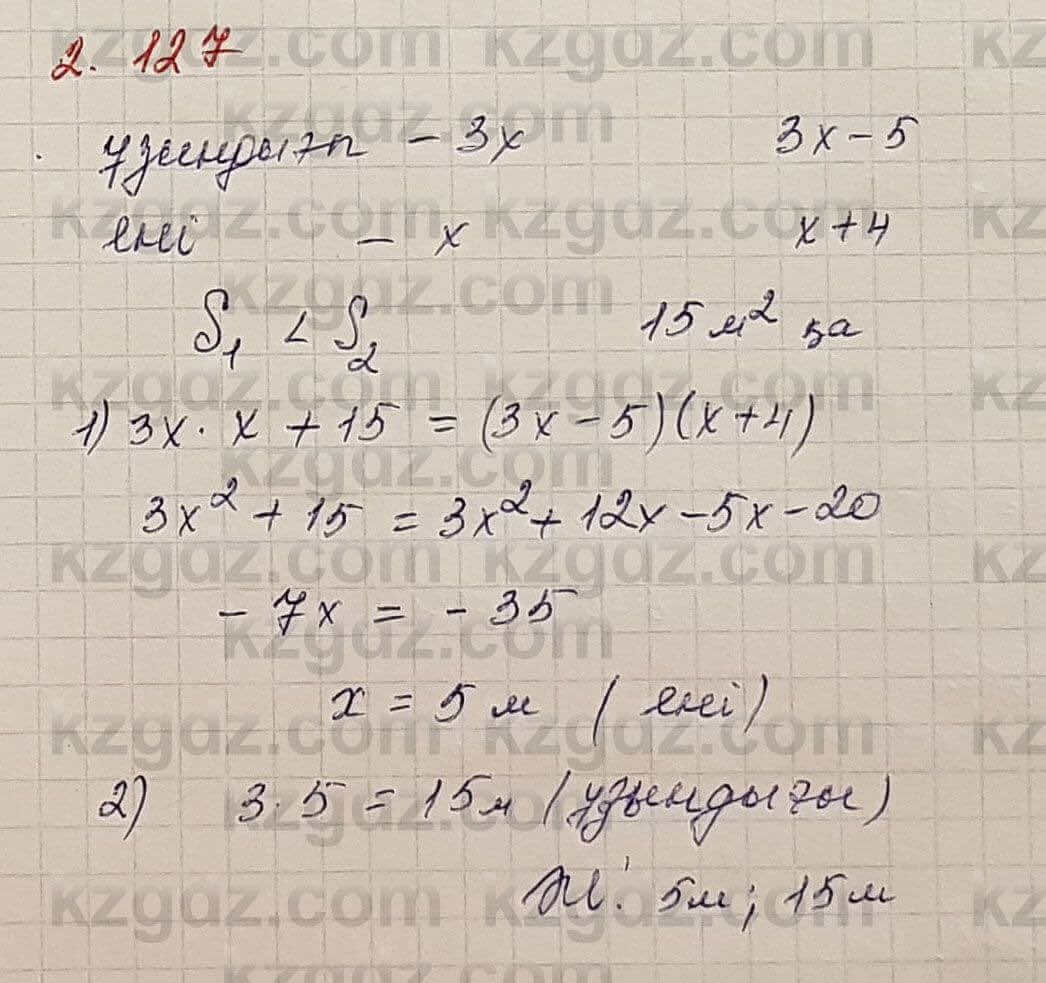 2. 127
ұзындығы - 3x 3x - 5
ені - x x + 4
S₁ < S₂ 15 м² қа
1) 3x · x + 15 = (3x - 5)(x + 4)
3x² + 15 = 3x² + 12x - 5x - 20
- 7x = - 35
x = 5 м ( ені )
2) 3 · 5 = 15 м ( ұзындығы )
Ж: 5м; 15м
kzgdz.com